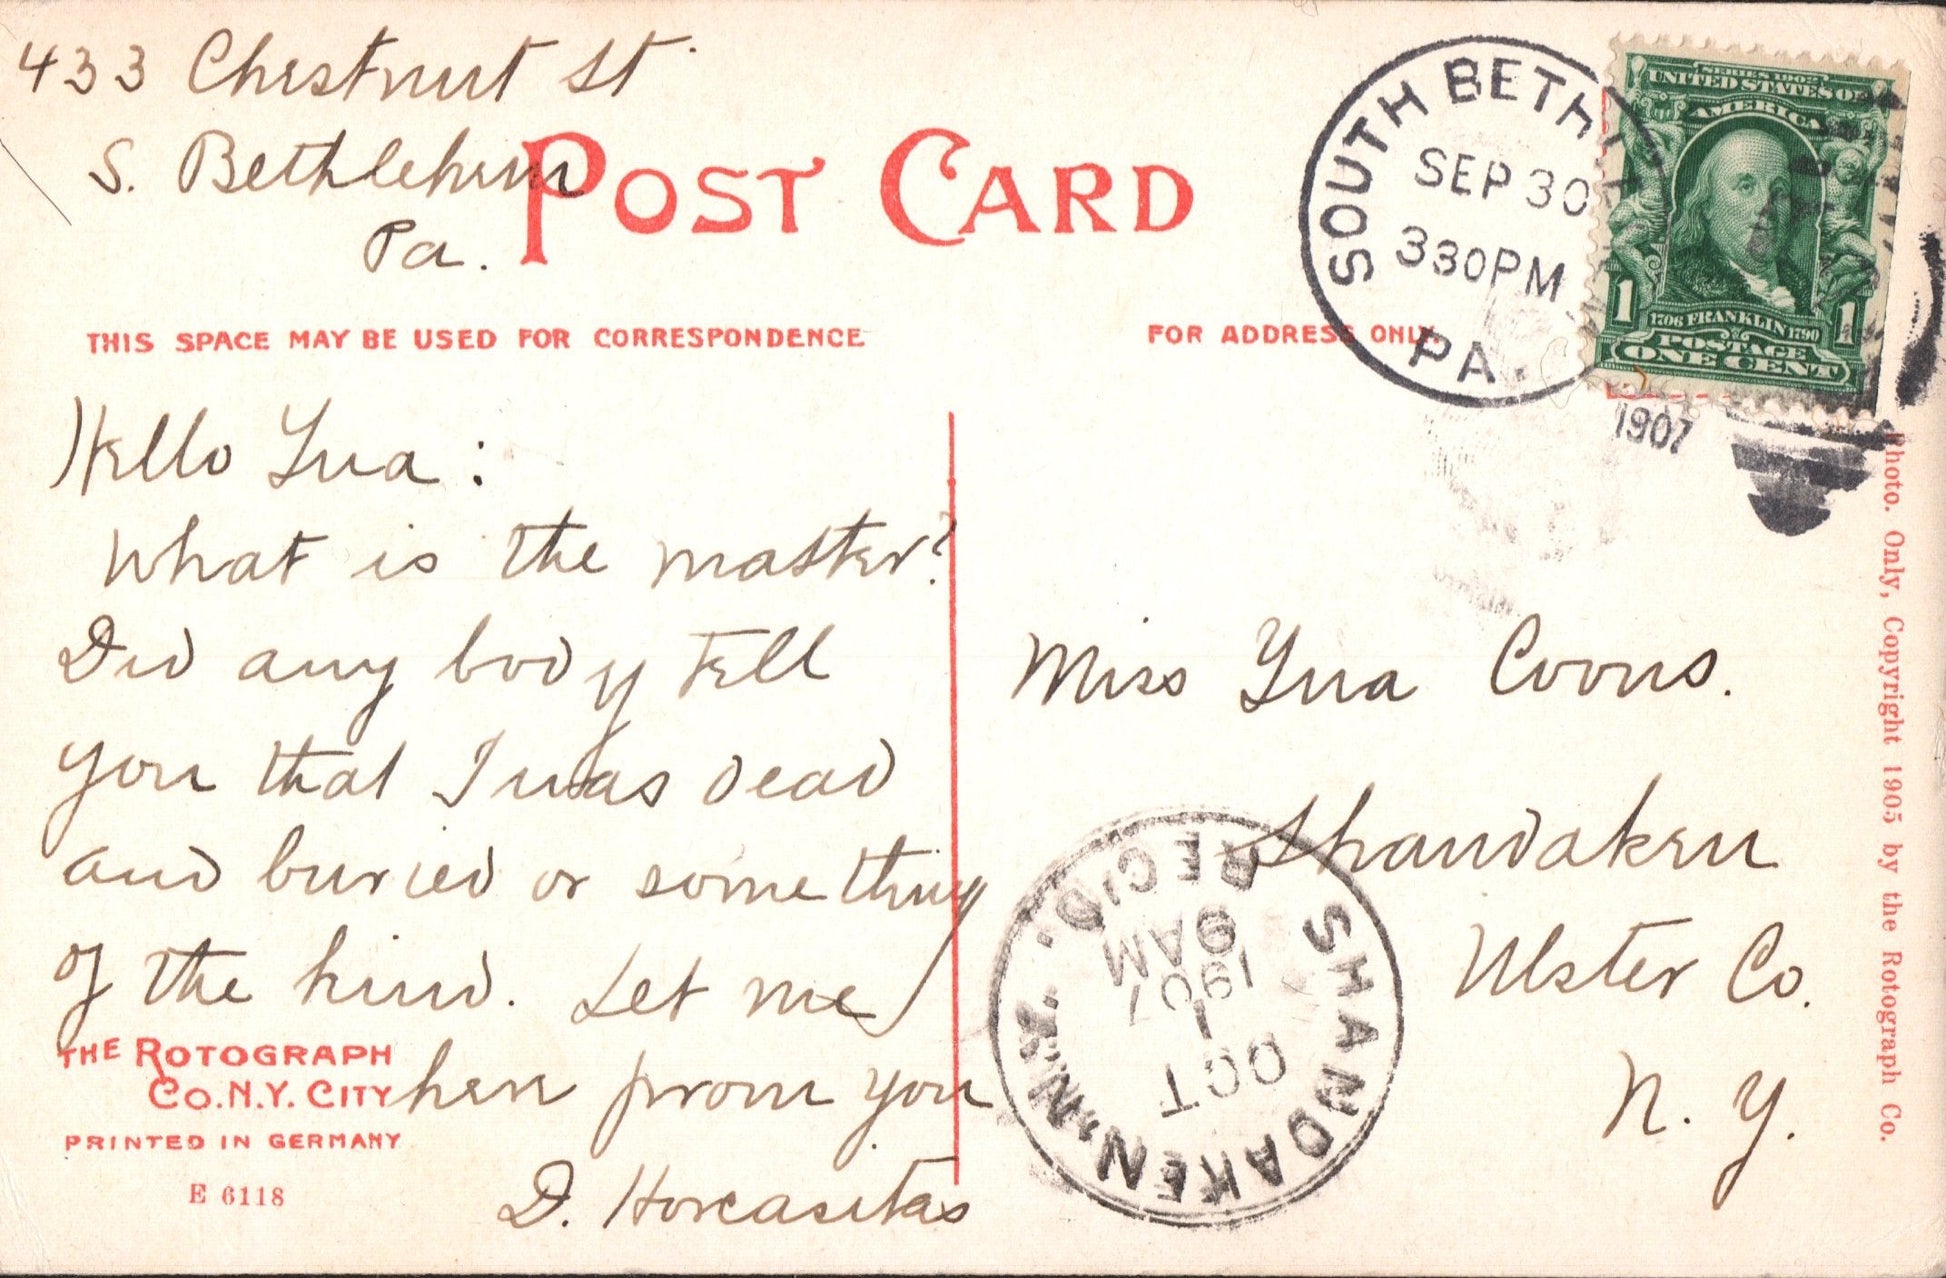 433 Chestnut St.
S. Bethlehem
Pa.
POST CARD
THIS SPACE MAY BE USED FOR CORRESPONDENCE
FOR ADDRESS ONLY
Hello Ina:
What is the matter?
Did any body tell
you that I was dead
and buried or something
of the kind. Let me
hear from you
D. Horcasitas
Miss Ina Coons.
Shandaken
Ulster Co.
N. Y.
SOUTH BETHLEHEM
SEP 30
330PM
PA.
1907
SERIES 1902
UNITED STATES OF
AMERICA
1706 FRANKLIN 1790
1 1
POSTAGE
ONE CENT
SHANDAKEN, N.Y.
REC'D.
OCT
1
1907
9 AM
THE ROTOGRAPH
CO. N.Y. CITY
PRINTED IN GERMANY
E 6118
Photo. Only, Copyright 1905 by the Rotograph Co.